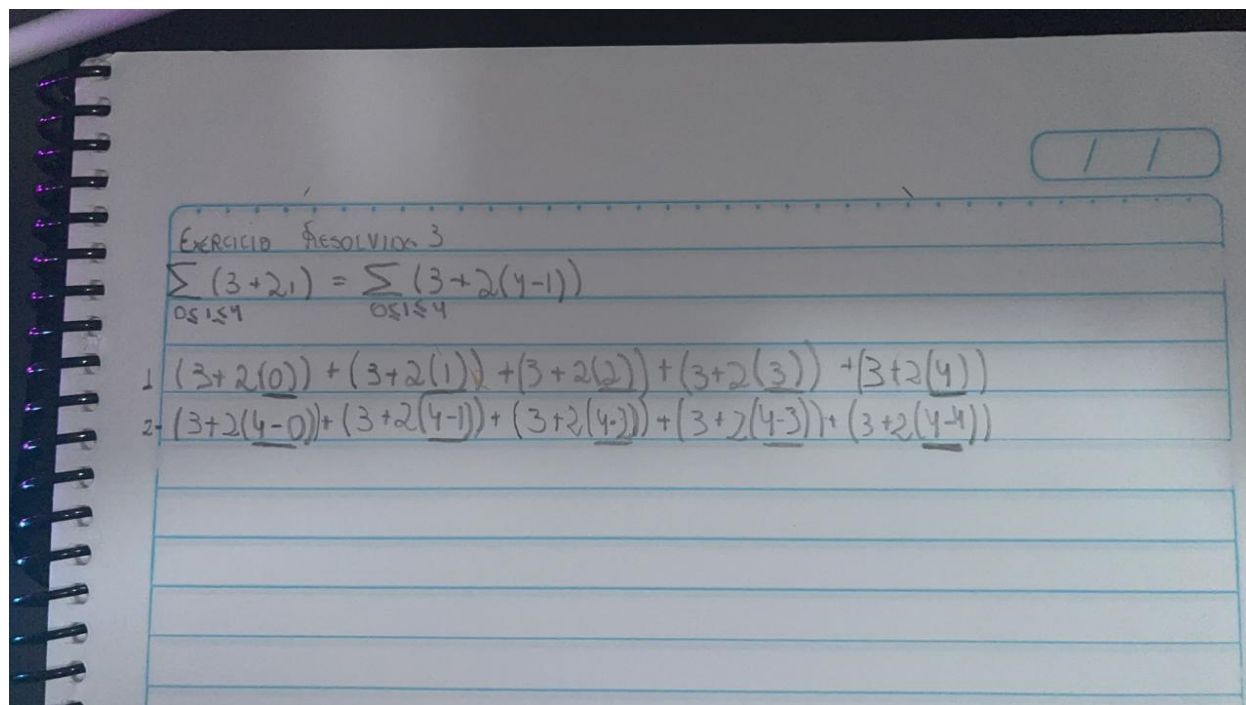 EXERCICIO RESOLVIDO 3
∑ (3+2i) = ∑ (3+2(4-i))
0≤i≤4 0≤i≤4
1 (3+2(0)) + (3+2(1)) + (3+2(2)) + (3+2(3)) + (3+2(4))
2- (3+2(4-0)) + (3+2(4-1)) + (3+2(4-2)) + (3+2(4-3)) + (3+2(4-4))